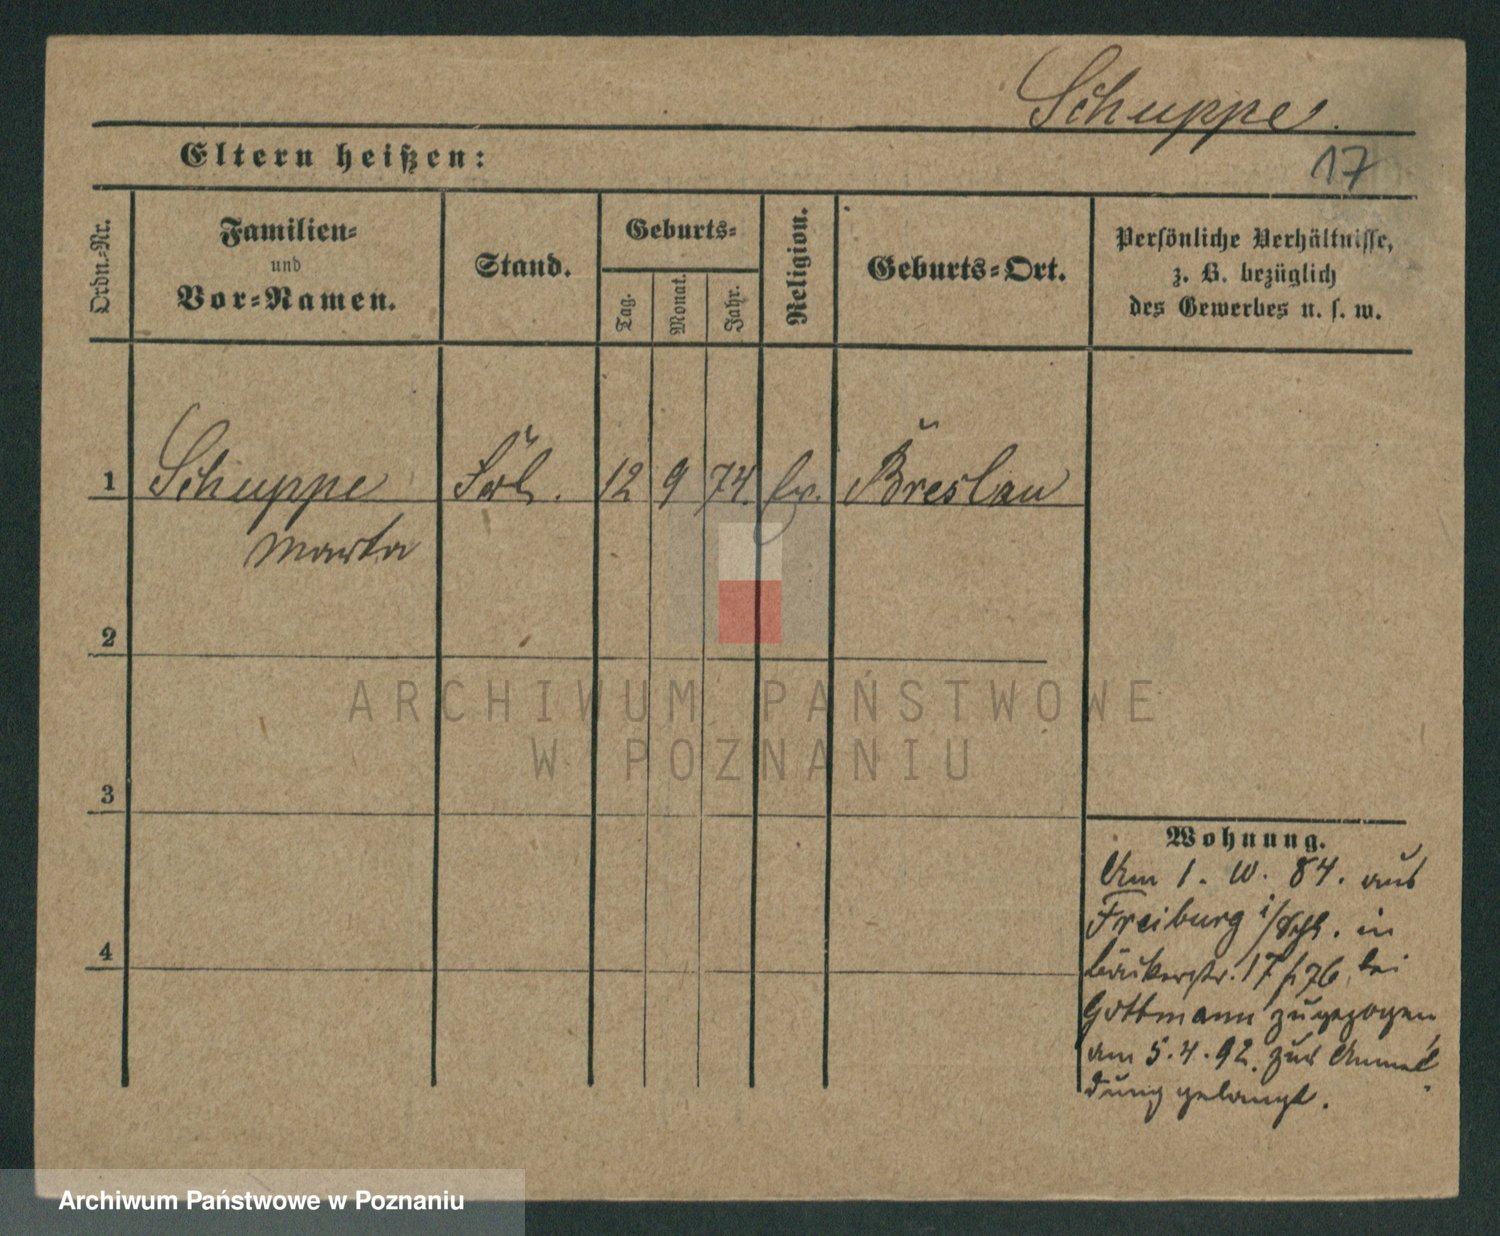 Schuppe.
Eltern heißen:
17
Ordn.-Nr.
Familien-
und
Vor-Namen.
Stand.
Geburts-
Tag.
Monat.
Jahr.
Religion.
Geburts-Ort.
Persönliche Verhältnisse,
z. B. bezüglich
des Gewerbes u. s. w.
1 Schuppe 12 9 74. ev. Breslau
Marta
2
3
4
Wohnung.
Am 1. 10. 84. aus
Freiburg i/Schl. in
Bäckerstr. 17 bei
Gottmann zugezogen
am 5.4.92. zur Anmel
dung gelangt.
ARCHIWUM PAŃSTWOWE
W POZNANIU
Archiwum Państwowe w Poznaniu